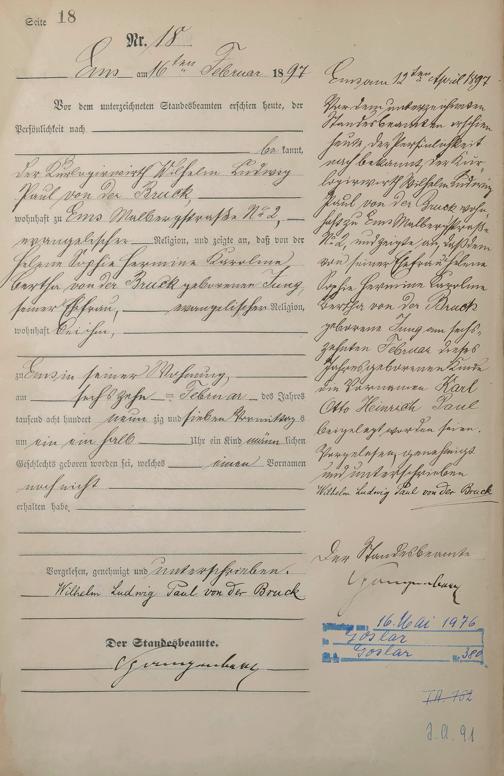 Seite 18
Nr. 18
Ems am 16ten Februar 1897
Vor dem unterzeichneten Standesbeamten erschien heute, der
Persönlichkeit nach
be kannt,
der Kurlogirwirth Wilhelm Ludwig
Paul von der Bruck,
wohnhaft zu Ems Malbergstraße No 2,
evangelischer Religion, und zeigte an, daß von der
Helene Sophie Hermine Karoline
Bertha von der Bruck geborenen Jung,
seiner Ehefrau, evangelischer Religion,
wohnhaft bei ihm,
zu Ems in seiner Wohnung,
am sechszehn ten Februar des Jahres
tausend acht hundert neun zig und sieben Vormittag s
um ein ein halb Uhr ein Kind männ lichen
Geschlechts geboren worden sei, welches einen Vornamen
noch nicht
erhalten habe.
Vorgelesen, genehmigt und unterschrieben.
Wilhelm Ludwig Paul von der Bruck
Der Standesbeamte.
Ems am 12ten April 1897
Vor dem unterzeichneten
Standesbeamten erschien
heute, der Persönlichkeit
nach bekannt, der Kur-
logirwirth Wilhelm Ludwig
Paul von der Bruck wohn-
haft zu Ems Malbergstraße
No 2, und zeigte an, daß dem
von seiner Ehefrau Helene
Sophie Hermine Karoline
Bertha von der Bruck
geborene Jung am sechs-
zehnten Februar dieses
Jahres geborenen Kinde
die Vornamen Karl
Otto Heinrich Paul
beigelegt worden seien.
Vorgelesen, genehmigt
und unterschrieben
Wilhelm Ludwig Paul von der Bruck
Der Standesbeamte
16. Mai 1976
in Goslar
Goslar Nr. 380
J.A. 91